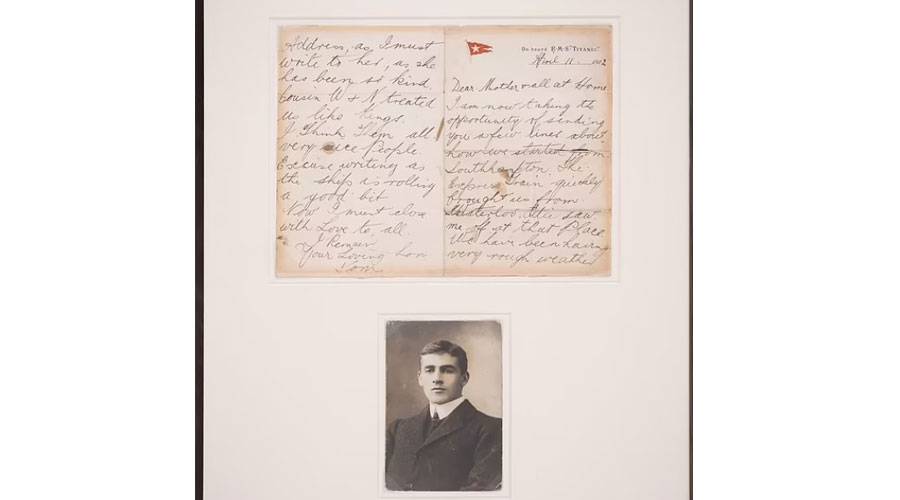 Address, as I must
write to her, as she
has been so kind.
Cousin W & N treated
us like kings.
I Think Them all
very nice People
Excuse writing as
the ship is rolling
a good bit
Now I must close
with Love to, all.
I Remain
Your Loving Son
Tom
On board R·M·S "TITANIC"
April 11. 1912
Dear Mother & all at Home
I am now taking the
opportunity of sending
you a few lines about
how we started from
Southhampton. The
Express Train quickly
brought us from
Waterloo. saw
me off at that Place
We have been having
very rough weather